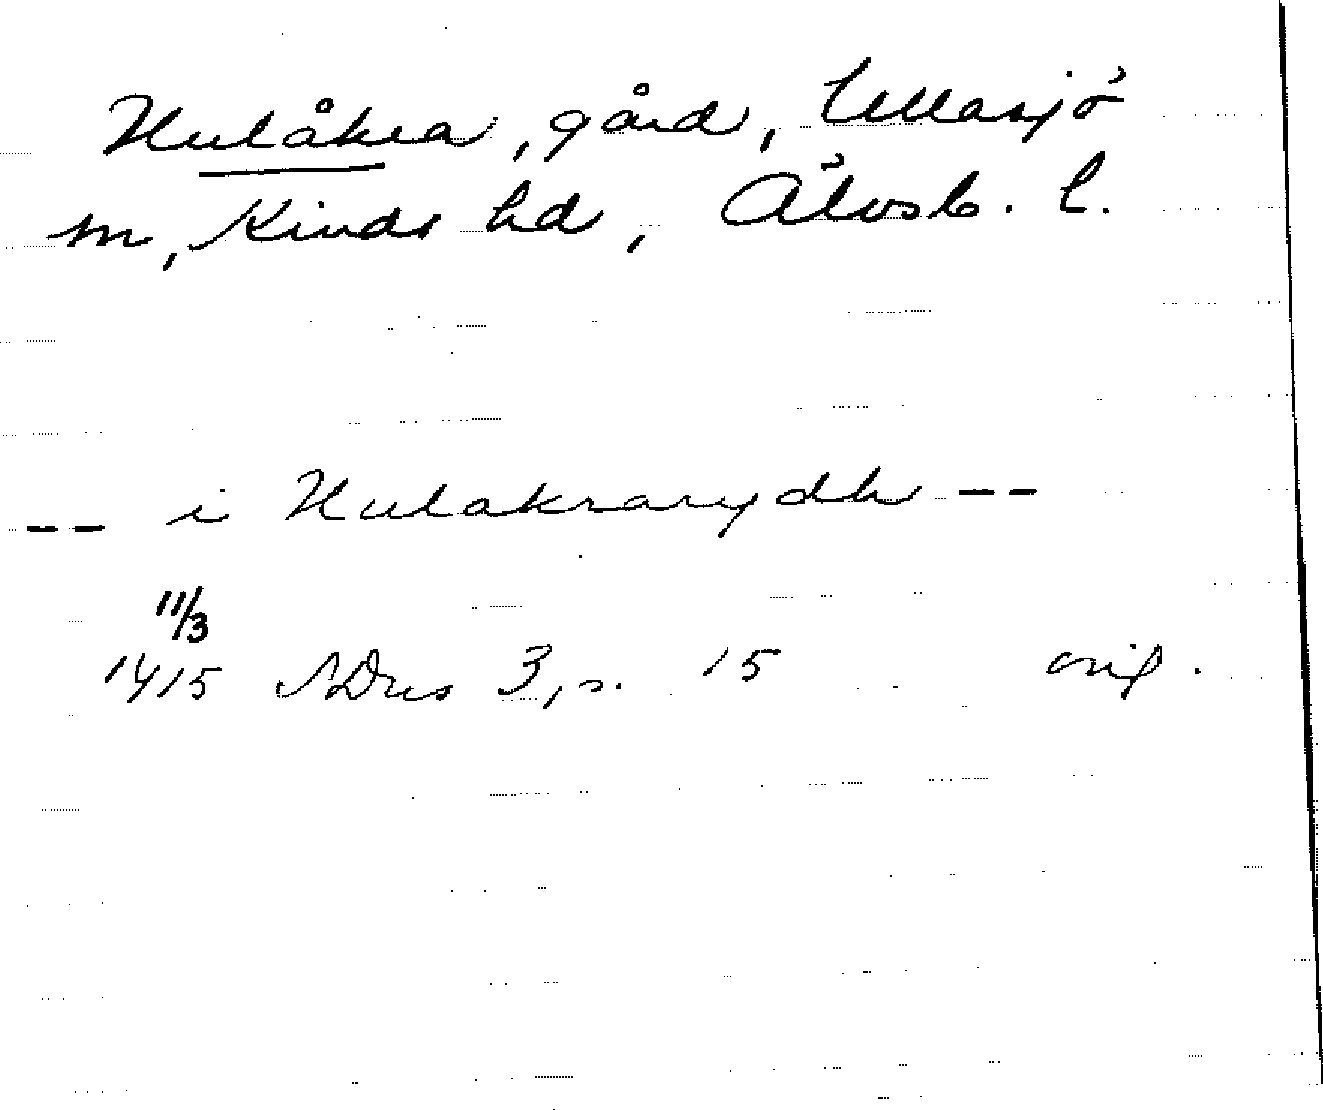 Hulåkra, gård, Ullasjö
sn, Kinds hd, Älvsb. l.
-- i Hulakrarydh --
11/3
1415 SDns 3, s. 15 orig.